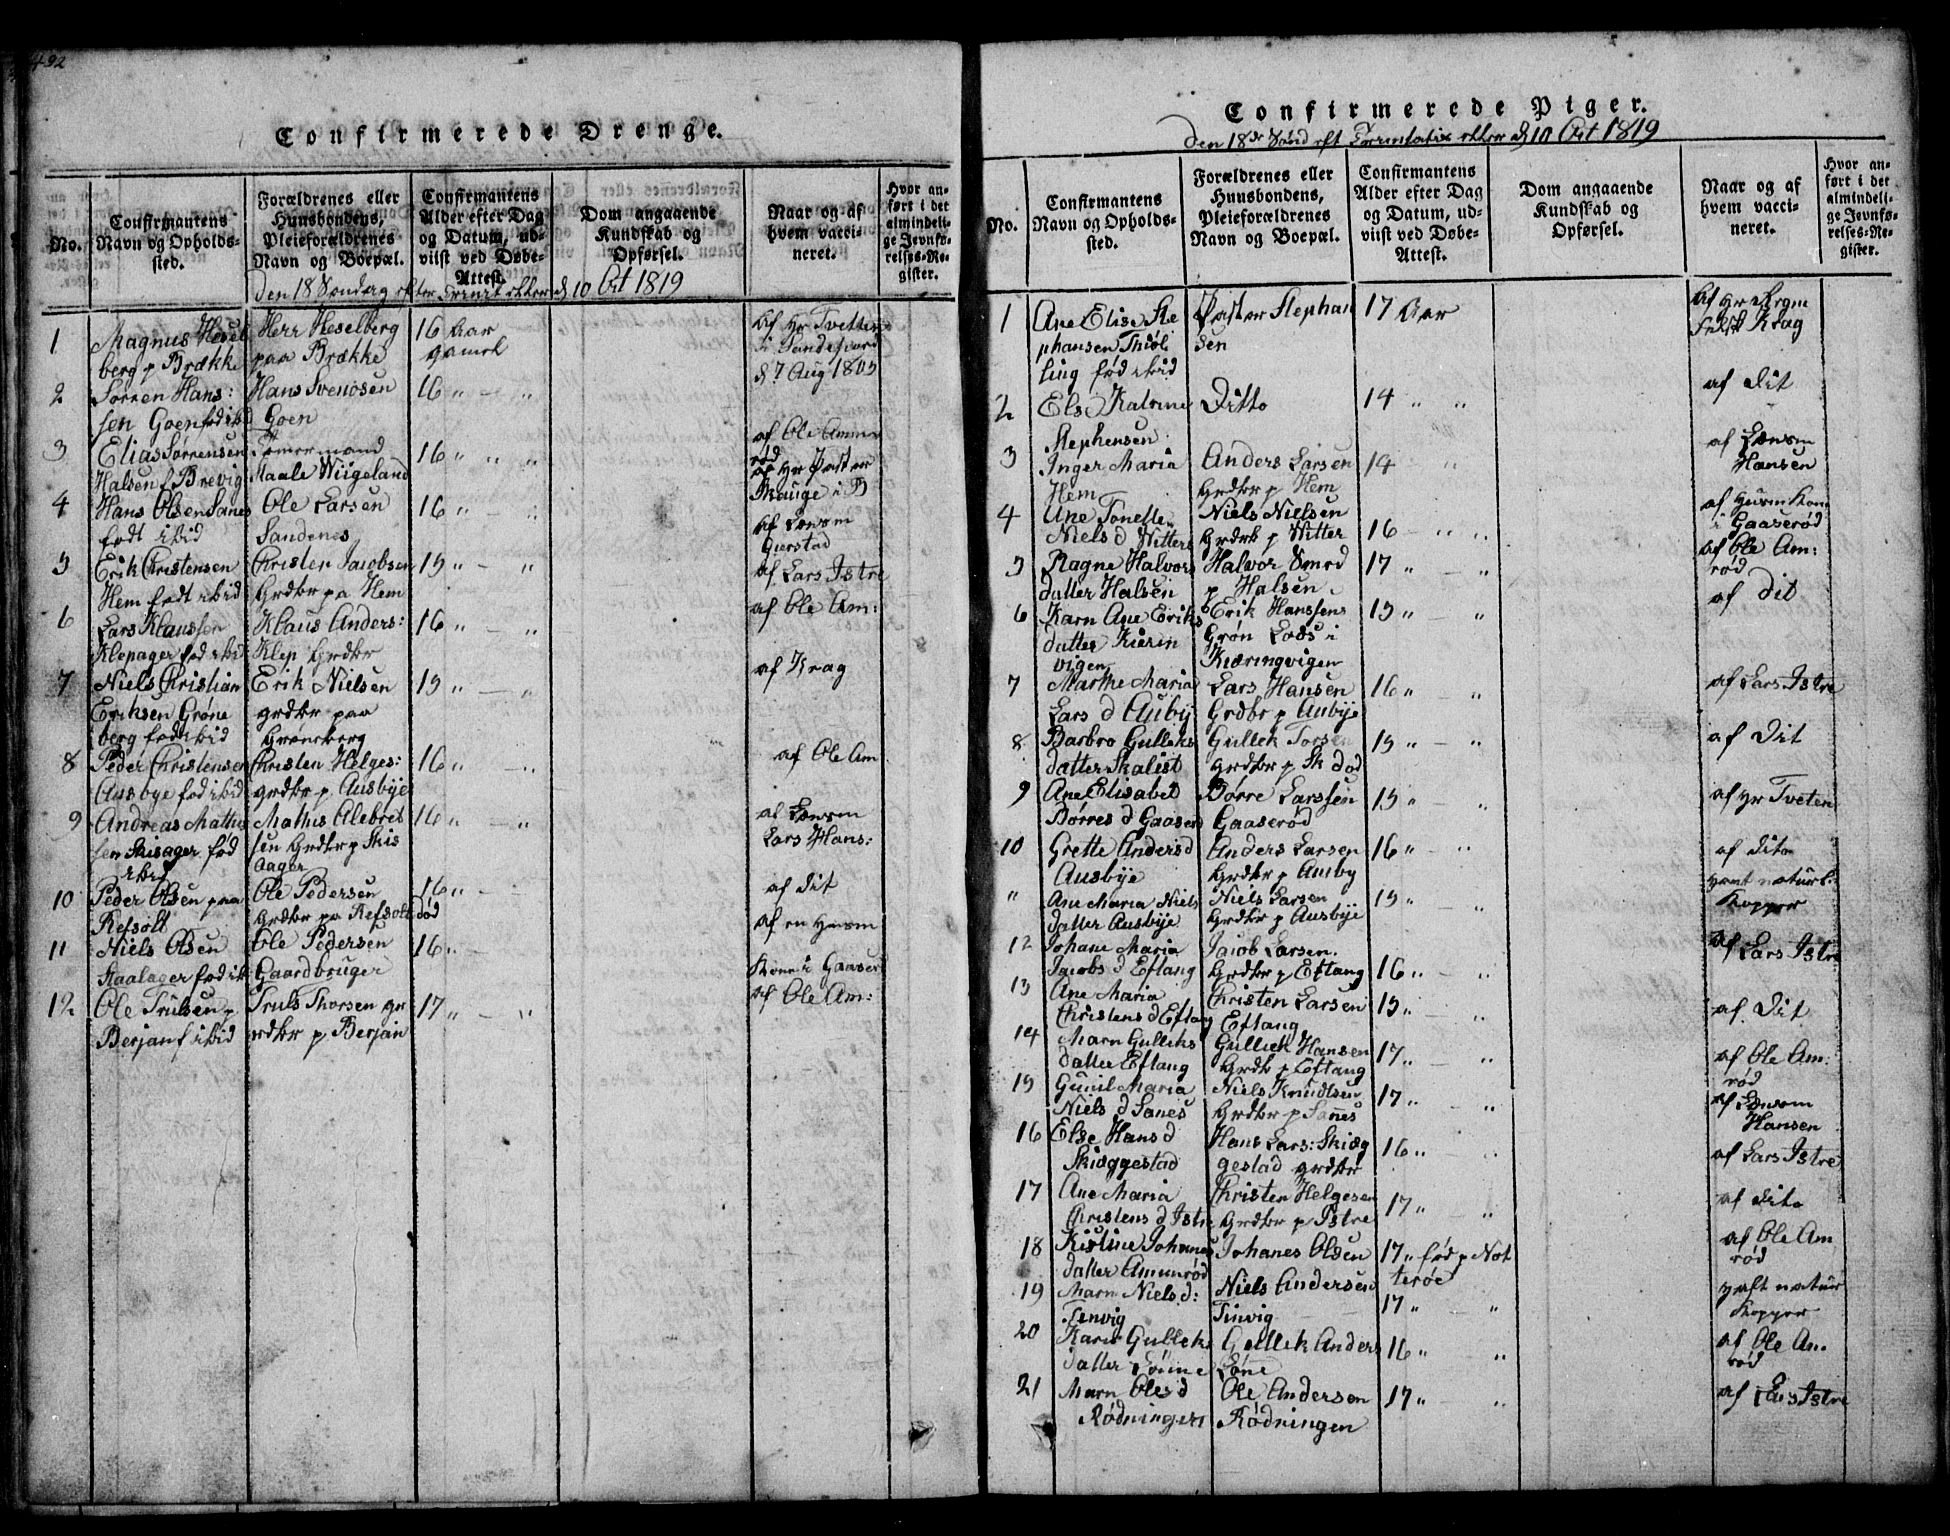 492
Confirmerede Drenge.
No.
Confirmantens
Navn og Opholds-
sted.
Forældrenes eller
Huusbondens,
Pleieforældrenes
Navn og Boepæl.
Confirmantens
Alder efter Dag
og Datum, ud-
viist ved Døbe-
Attest.
Dom angaaende
Kundskab og
Opførsel.
Naar og af
hvem vacci-
neret.
Hvor an-
ført i det
almindeli-
ge Jevnfø-
relses-Re-
gister.
Den 18 Søndag efter Trinit 10 Oct 1819
1
Magnus Hesel
berg p Brække
Herr Heselberg
paa Brække
16 Aar
gamel
af Hr Tvetten
i Sandefiord
d 7 Aug 1805
2
Sørren Hans:
sen Goen fød ibid
Hans Svendsen
Goen
16 " — "
af Ole Ammu
rød
3
Elias Sørrensen
Halsen f Brevig
Tømermand
Maale Wiigeland
16 " " "
af Hr Pastor
Skauge i B
4
Hans Olsen Sanes
født ibid
Ole Larsen
Sandenes
16 " — "
af Lænsm
Gierstad
5
Erik Christensen
Hem født ibid
Christen Jacobsen
Grdbr pa Hem
15 " — "
af Lars Istre
6
Lars Klaussen
Klepager fød ibid
Klaus Anders:
Klep Grdbr
16 " — "
af Ole Am:
7
Niels Christian
Eriksen Grøne
berg fød ibid
Erik Nielsen
grdbr paa
Grøneberg
15 " — "
af Krag
8
Peder Christensen
Ausbye fød ibid
Christen Helges:
grdbr p. Ausbye
16 " — "
af Ole Am
9
Andreas Mathis
sen Skisager fød
ibid
Mathis Alebret
sen Grdbr p Skis
Aager
16 " — "
af Lænsm
Lars Hans:
10
Peder Olsen paa
Refsølt
Ole Pedersen
Grdbr pa Refsolt død
16 " —
af dit
11
Niels Olsen
Haalager fød ib
Ole Pedersen
Gaardbruger
16 " —
af en Huusm
Kone i Gaaser
12
Ole Trulsen p
Berjan f ibid
Truls Thorsen gr
rdbr p Berjan
17 " — "
af Ole Am:
Confirmerede Piger.
Den 18de Sønd eft Trinitatis 10 Oct 1819
No.
Confirmantens
Navn og Opholds-
sted.
Forældrenes eller
Huusbondens,
Pleieforældrenes
Navn og Boepæl.
Confirmantens
Alder efter Dag
og Datum, ud-
viist ved Døbe-
Attest.
Dom angaaende
Kundskab og
Opførsel.
Naar og af
hvem vacci-
neret.
Hvor an-
ført i det
almindeli-
ge Jevnfø-
relses-Re-
gister.
1
Ane Elise Ste
phansen Thiøl
ling fød ibid
Pastor Stephan
sen
17 Aar
af Hr
Krag
2
Else Katrine
Stephensen
Ditto
14 " "
af Dit
3
Inger Maria
Hem
Anders Larsen
Grdbr p Hem
14 "
af Lænsm
Hansen
4
Ane Tonette
Niels d Witters
Niels Nielsen
Grdbr p Witter
16 — " "
af Husm Kon
i Gaaserød
5
Ragne Halvors
datter Halsen
Halvor Smed
p Halsen
17 " — "
af Ole Am:
rød
6
Karn Ane Eriks
datter Kierin
vigen
Erik Hanssens
Grøn Lods i
Kiæringvigen
15 " — "
af dit
7
Marthe Maria
Lars d Auby
Lars Hansen
Grdbr p Aubye
16 " — "
af Lars Istre
8
Barbro Gulleks
datter Skalist
Gullek Torsen
grdbr p Sk død
15 " — "
af Dit
9
Ane Elisabet
Børres d Gaaserd
Borre Larssen
Gaaserød
15 " "
af Hr Tveten
10
Grette Andersd
Ausbye
Anders Larsen
Grdbr p Auby
16 " — "
af dito
"
Ane Maria Niels
datter Ausbye
Niels Larsen
Grdbr p Ausbye
15 " — "
havt naturl:
Kopper
12
Johane Maria
Jacobs d Eftang
Jacob Larsen.
Grdbr p Eftang
16 " — "
af Lars Istre
13
Ane Maria
Christens d Eftang
Christen Larsen
Eftang
15 " — "
af Dit
14
Marn Gulleks
datter Eftang
Gullick Hansen
Grdbr p Eftang
17 " — "
af Ole Am:
rød
15
Gunil Maria
Niels d Sanes
Niels Knudtsen
Grdbr p Sanes
17 " — "
af Lænsm
Hansen
16
Else Hans d
Skiæggestad
Hans Lars: Skiæg
gestad grdbr
16 " — "
af Lars Istre
17
Ane Maria
Christens d Istre
Christen Helgesen
Grdbr p Istre
17 " — "
af dito
18
Kistine Johannes
datter Amunrød
Johanes Olsen
17 " fød p Not
terøe
af Ole Am
rød
19
Marn Niels d:
Tenvig
Niels Andersen
Tinvig
17 " — "
haft natur
Kopper
20
Karn Gulleks
datter Lønne
Gullek Anders
Løne
16 " — "
af Ole Am.
rød
21
Marn Oles d
Rødningen
Ole Andersen
Rødningen
17 " — "
af Lars Istre